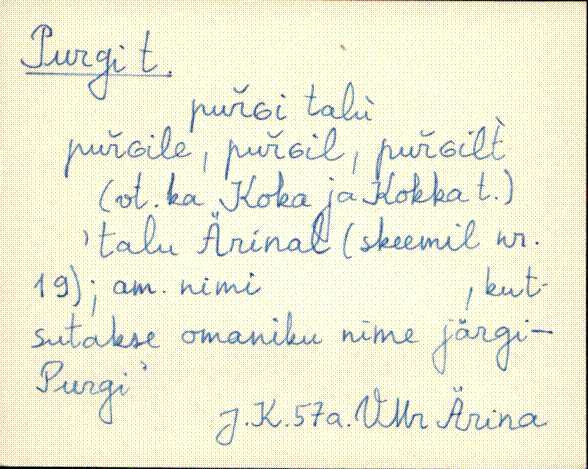 Purgi t.
purɢ̆i talù
purɢ̆ile, purɢ̆il, purɢ̆ilt̀
(vt. ka Koka ja Kokka t.)
'talu Ärinal (skeemil nr.
19); am. nimi , kut-
sutakse omaniku nime järgi –
Purgi'
J.K. 57a. VMr Ärina